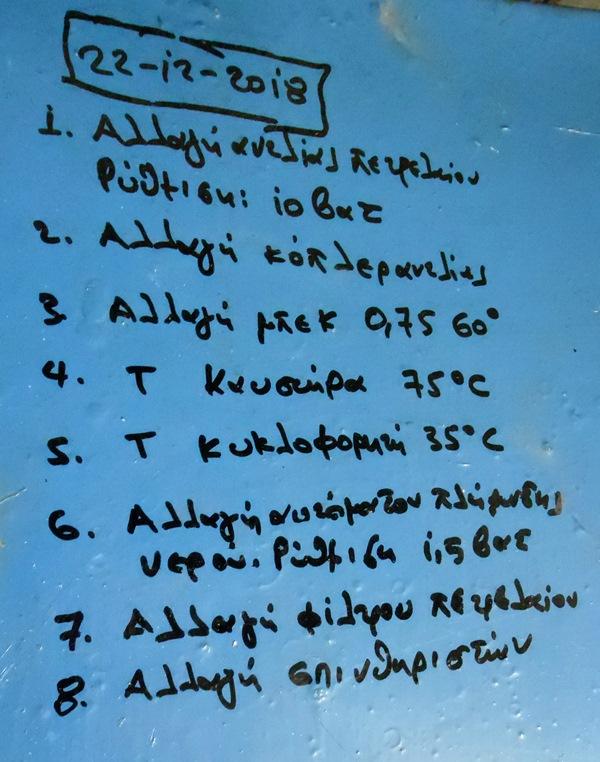 22-12-2018
1. Αλλαγή αντλίας πετρελαίου
Ρύθμιση: 10 βατ
2. Αλλαγή κόπλεραντλίας
3. Αλλαγή μπεκ 0,75 60°
4. Τ Καυστήρα 75°C
5. Τ Κυκλοφορητή 35°C
6. Αλλαγή αυτόματου πλήρωσης
νερού. Ρύθμιση 1,5 βατ
7. Αλλαγή φίλτρου πετρελαίου
8. Αλλαγή σπινθηριστών